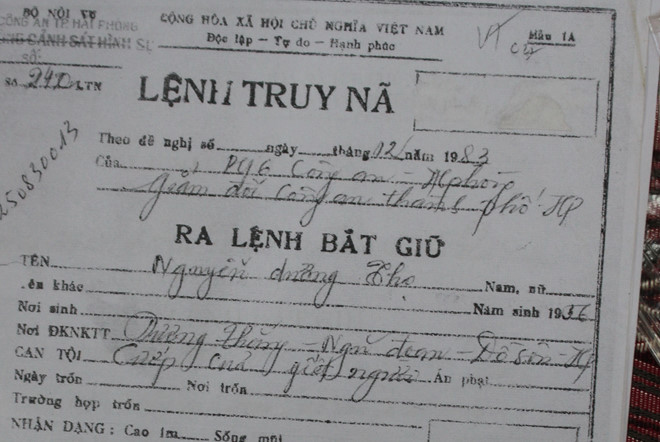 BỘ NỘI VỤ
CỘNG HÒA XÃ HỘI CHỦ NGHĨA VIỆT NAM
Mẫu 1A
CÔNG AN TP HẢI PHÒNG
Độc lập - Tự do - Hạnh phúc
VT
PHÒNG CẢNH SÁT HÌNH SỰ
SỐ:
Số 240 LTN
LỆNH TRUY NÃ
250830013
Theo đề nghị số ngày tháng 02 năm 1983
Của PC16 Công an - Hphòng
Giám đốc Công an thành phố - HP
RA LỆNH BẮT GIỮ
TÊN Nguyễn dương Thọ Nam, nữ
Tên khác Năm sinh 1936
Nơi sinh
Nơi ĐKNKTT Dương thắng - Ngũ đoan - Đồ sơn - HP
CAN TỘI Cướp của giết người Án phạt
Ngày trốn Nơi trốn
Trường hợp trốn
NHẬN DẠNG : Cao 1m Sống mũi